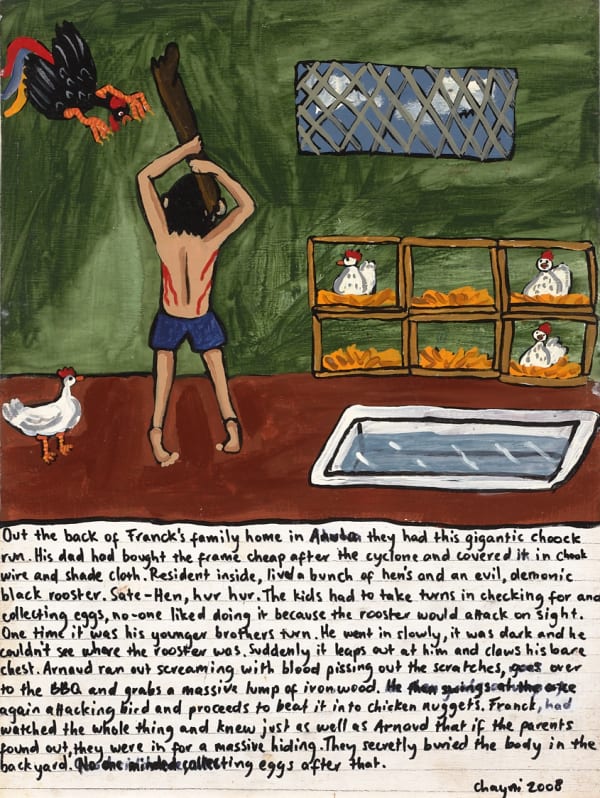 Out the back of Franck's family home in they had this gigantic choock
run. His dad had bought the frame cheap after the cyclone and covered it in chook
wire and shade cloth. Resident inside, lived a bunch of hen's and an evil, demonic
black rooster. Sate-Hen, hur hur. The kids had to take turns in checking for and
collecting eggs, no-one liked doing it because the rooster would attack on sight.
One time it was his younger brothers turn. He went in slowly, it was dark and he
couldn't see where the rooster was. Suddenly it leaps out at him and claws his bare
chest. Arnaud ran out screaming with blood pissing out the scratches, goes over
to the BBQ and grabs a massive lump of ironwood. He then swings at the
again attacking bird and proceeds to beat it into chicken nuggets. Franck, had
watched the whole thing and knew just as well as Arnaud that if the parents
found out, they were in for a massive hiding. They secretly buried the body in the
backyard. No one minded collecting eggs after that.
chayni 2008